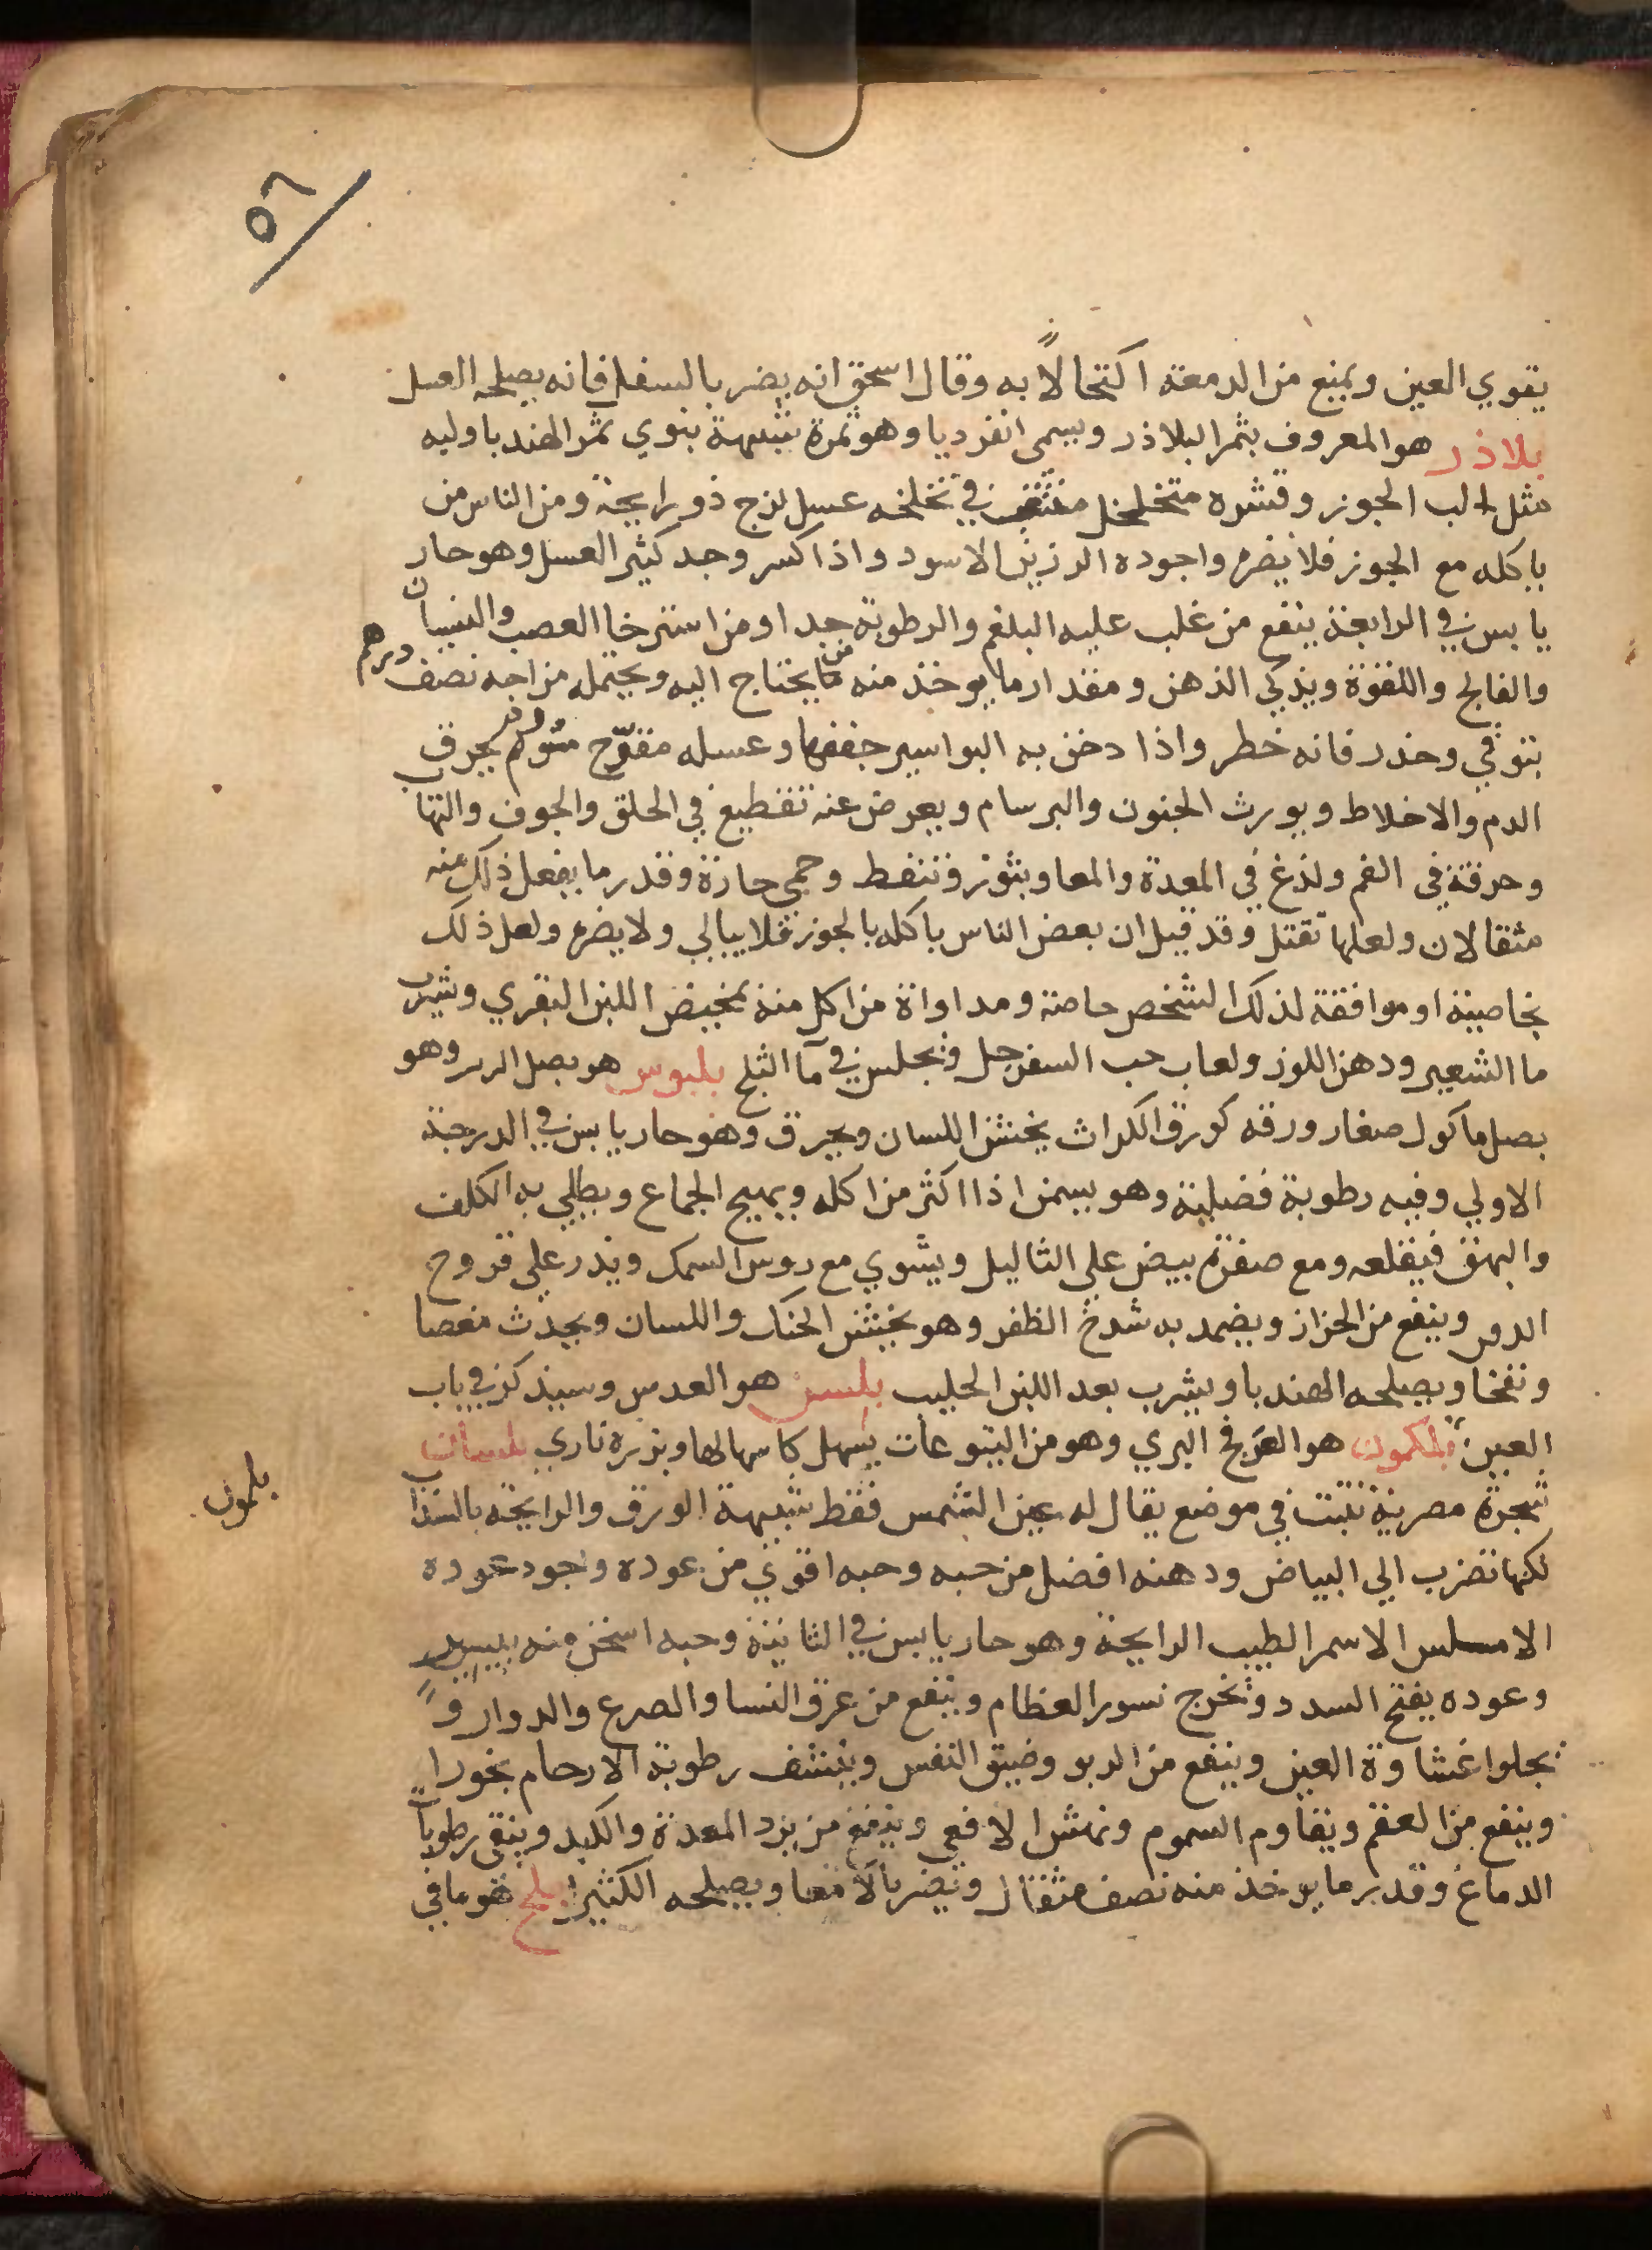 ٥٦
يقوي العين ويمنع من الدمعة اكتحالاً به وقال اسحق انه يضر بالسفل فانه يصلحه العسل
بلاذر هو المعروف بثمر البلاذر ويسمى انقرديا وهو ثمرة شبيهة بنوي تمر الهند باوليه
مثل لب الجوز وقشره متخلخل في تخلخله عسل لزج ذو رايحة ومن الناس من
ياكله مع الجوز فلا يضره واجوده الرزين الاسود واذا كسر وجد كثير العسل وهو حار
يابس في الرابعة ينفع من غلب عليه البلغم والرطوبة جدا ومن استرخا العصب والنسيان
والفالج واللقوة ويذكي الذهن ومقدار ما يوخذ منه من ما يحتاج اليه ويحتمله مزاجه نصف درهم
بتوقي وحذر فانه خطر واذا دخن به البواسير جففها وعسله مقرّح مورّم يحرق
الدم والاخلاط ويورث الجنون والبرسام ويعرض عنه تقطيع في الحلق والجوف والتها
وحرقة في الفم ولذع في المعدة والمعا وبثور وتنفط وحمى حارة وقدر ما يفعل ذلك منه
مثقالان ولعلها تقتل وقد قيل ان بعض الناس ياكله بالجوز فلا يبالي ولا يضره ولعل ذلك
بخاصية او موافقة لذلك الشخص خاصة ومداواة من اكل منه بمخيض اللبن البقري وشرب
ما الشعير ودهن اللوز ولعاب حب السفرجل ويجلس في مآ الثلج بلبوس هو بصل الرير وهو
بصل ماكول صغار ورقه كورق الكراث يخشن اللسان ويحرق وهو حار يابس في الدرجة
الاولي وفيه رطوبة فضلية وهو يسمن اذا اكثر من اكله ويهيج الجماع ويطلي به الكلف
والبهق فيقلعه ومع صفرة بيض علي الثاليل ويشوي مع روس السمك ويذر علي قروح
الدقن وينفع من الحزاز ويضمد به شدخ الظفر وهو يخشن الحنك واللسان ويحدث مغصا
ونفخا ويصلحه الهندبا ويشرب بعد اللبن الحليب بلسن هو العدس وسيذكر في باب
العين بلكمون هو العرفج البري وهو من اليتوعات يسهل كاسهالها وبزره ناري بلسان
شجرة مصرية تنبت في موضع يقال له عين الشمس فقط شبيهة الورق والرايحة بالسذاب
لكنها تضرب الي البياض ودهنه افضل من حبه وحبه اقوي من عوده وجود عوده
الاملس الاسمر الطيب الرايحة وهو حار يابس في الثانية وحبه اسخن منه بيسير
وعوده يفتح السدد وتخرج نسور العظام وينفع من عرق النسا والصرع والدوار و
يجلوا غشاوة العين وينفع من الربو وضيق النفس وينشف رطوبة الارحام بخورا
وينفع من العقم ويقاوم السموم ونهش الافعي وينفع من برد المعدة والكبد وينقي رطوبات
الدماغ وقدر ما يوخذ منه نصف مثقال وتضر بالامعا ويصلحه الكثيرا بلح هو ما في
بلمون